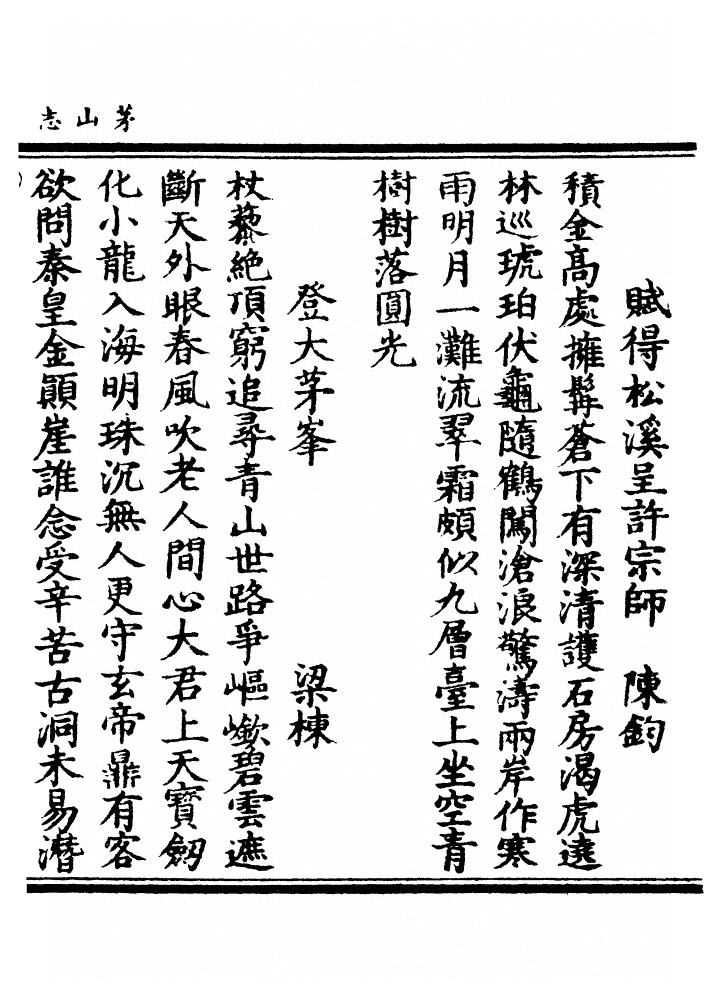 茅山志
賦得松溪呈許宗師　陳鈞
積金高處擁髯蒼下有深清護石房渴虎遶
林巡琥珀伏龜隨鶴闖滄浪驚濤兩岸作寒
雨明月一灘流翠霜頗似九層臺上坐空青
樹樹落圓光
登大茅峯　梁棟
杖藜絶頂窮追尋青山世路爭嶇嶔碧雲遮
斷天外眼春風吹老人間心大君上天寶劒
化小龍入海明珠沉無人更守玄帝鼎有客
欲問秦皇金顚崖誰念受辛苦古洞未易潛